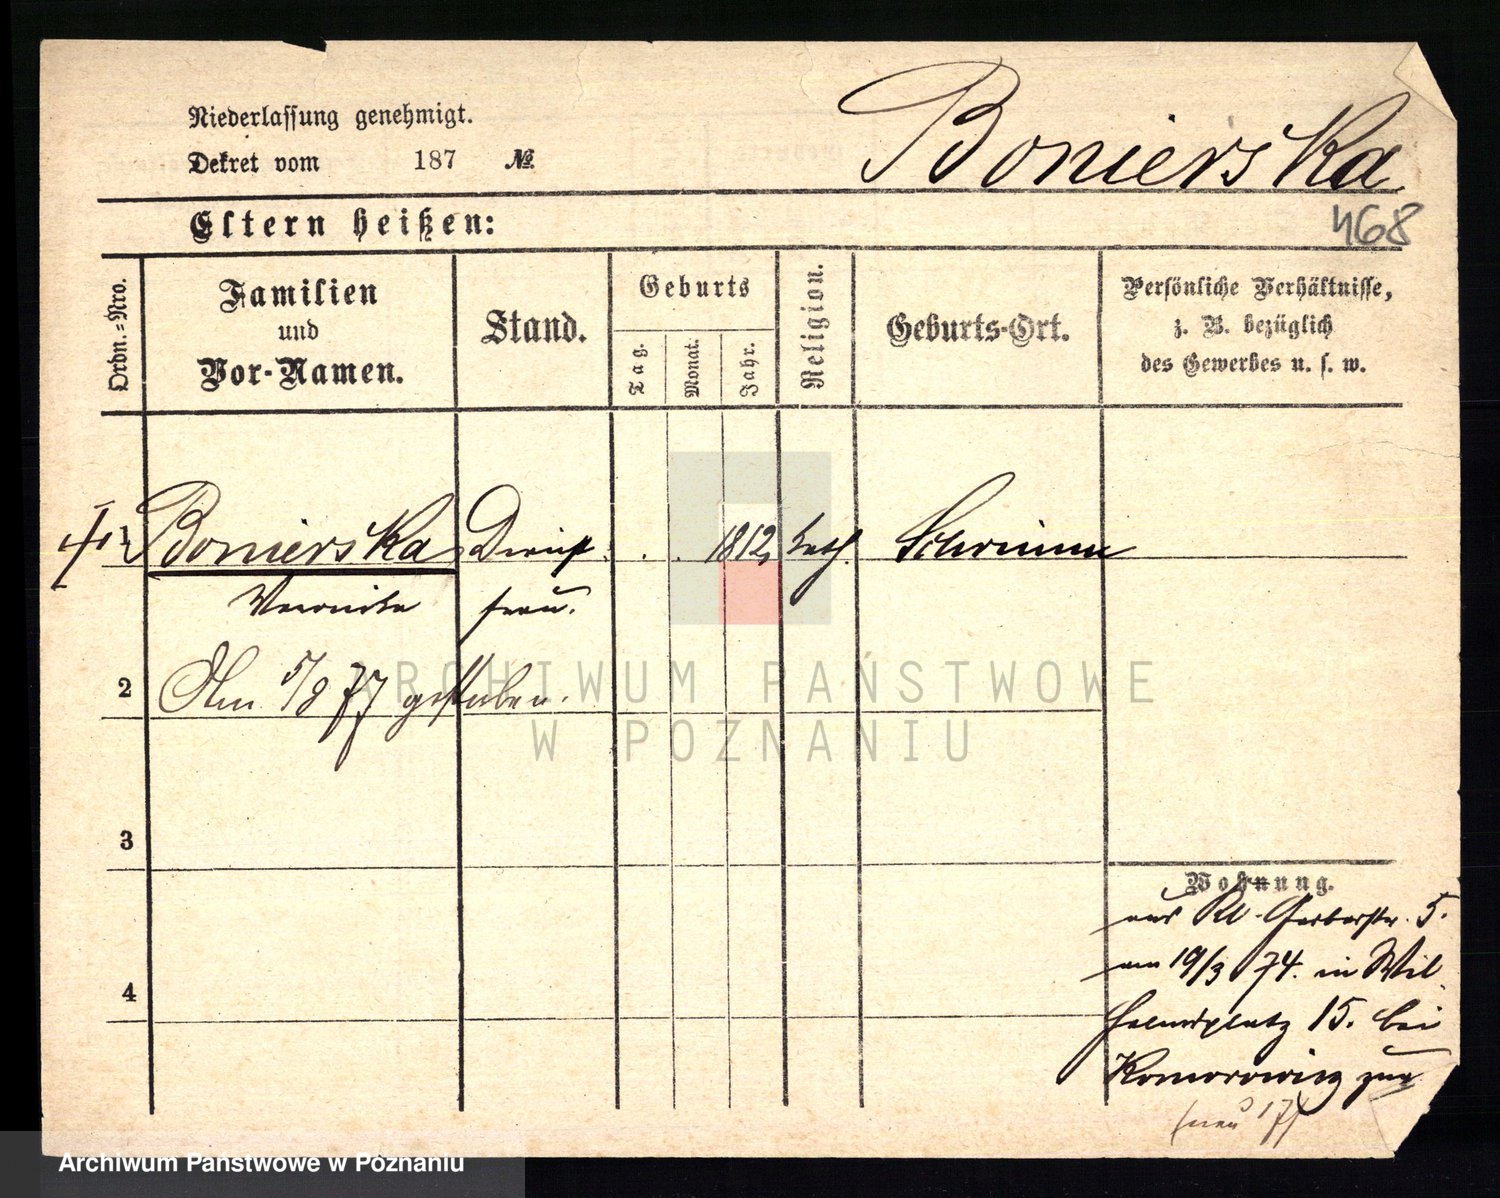 Niederlassung genehmigt.
Dekret vom 187 №
Bonierska
468
Eltern heißen:
Ordn.=Nro.
Familien
und
Vor-Namen.
Stand.
Geburts
Tag.
Monat.
Jahr.
Religion.
Geburts-Ort.
Persönliche Verhältnisse,
z. B. bezüglich
des Gewerbes u. s. w.
1 Bonierska Dienst 1812 kath. Schrimm
frau.
2 Am 5/8 77 gestorben.
3
4
Wohnung.
aus Kl. Gerberstr. 5.
am 19/3 74. in Wil
helmsplatz 15. bei
zur
ARCHIWUM PAŃSTWOWE
W POZNANIU
Archiwum Państwowe w Poznaniu